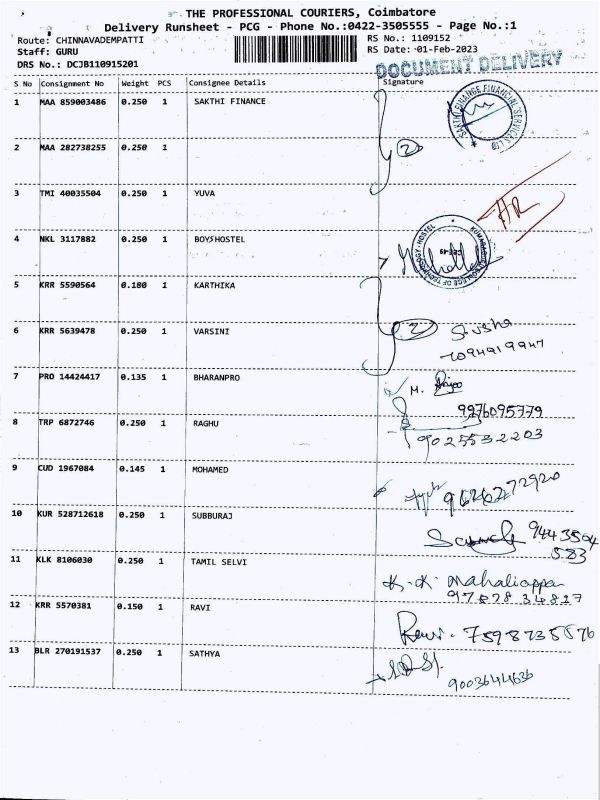 THE PROFESSIONAL COURIERS, Coimbatore
Delivery Runsheet - PCG - Phone No.:0422-3505555 - Page No.:1
Route: CHINNAVADEMPATTI
RS No.: 1109152
Staff: GURU
RS Date: 01-Feb-2023
DRS No.: DCJB110915201
DOCUMENT DELIVERY
S No Consignment No Weight PCS Consignee Details Signature
1 MAA 859003486 0.250 1 SAKTHI FINANCE
SAKTHI FINANCE FINANCIAL SERVICES LTD
2 MAA 282738255 0.250 1
2
3 TMI 40035504 0.250 1 YUVA
4 NKL 3117882 0.250 1 BOYSHOSTEL
5 KRR 5590564 0.180 1 KARTHIKA
6 KRR 5639478 0.250 1 VARSINI
2
7094919947
7 PRO 14424417 0.135 1 BHARANPRO
M.
9976095779
8 TRP 6872746 0.250 1 RAGHU
9025532203
9 CUD 1967084 0.145 1 MOHAMED
10 KUR 528712618 0.250 1 SUBBURAJ
9443504
583
11 KLK 8106030 0.250 1 TAMIL SELVI
K. K. Mahaliappa
12 KRR 5570381 0.150 1 RAVI
Ravi.
13 BLR 270191537 0.250 1 SATHYA
9003644636